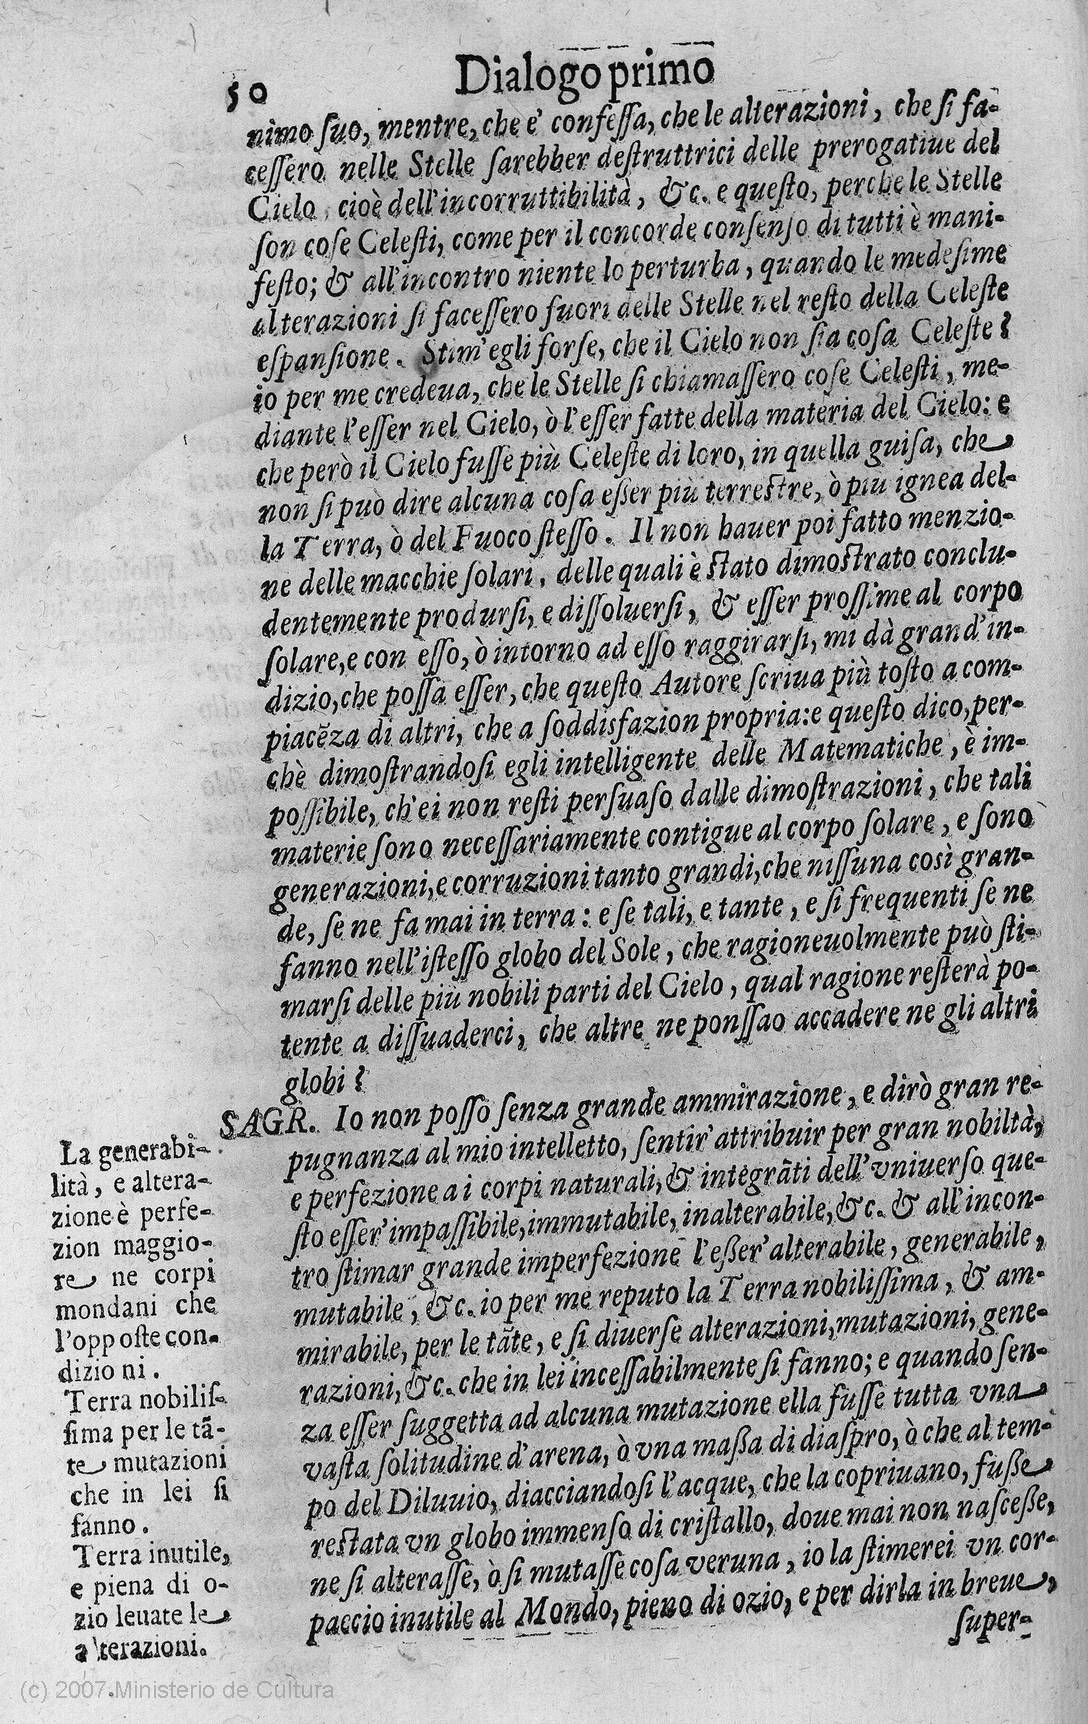 50
Dialogo primo
nimo ſuo, mentre, che e' confeſſa, che le alterazioni, che ſi fa-
ceſſero nelle Stelle ſarebber deſtruttrici delle prerogatiue del
Cielo, cioè dell'incorruttibilità, &c. e queſto, perche le Stelle
ſon coſe Celeſti, come per il concorde conſenſo di tutti è mani-
feſto; & all'incontro niente lo perturba, quando le medeſime
alterazioni ſi faceſſero fuori delle Stelle nel reſto della Celeſte
eſpanſione. Stim'egli forſe, che il Cielo non ſia coſa Celeſte?
io per me credeua, che le Stelle ſi chiamaſſero coſe Celeſti, me-
diante l'eſſer nel Cielo, ò l'eſſer fatte della materia del Cielo: e
che però il Cielo fuſſe più Celeſte di loro, in quella guiſa, che
non ſi può dire alcuna coſa eſſer più terreſtre, ò più ignea del-
la Terra, ò del Fuoco ſteſſo. Il non hauer poi fatto menzio-
ne delle macchie ſolari, delle quali è ſtato dimoſtrato conclu-
dentemente produrſi, e diſſoluerſi, & eſſer proſſime al corpo
ſolare, e con eſſo, ò intorno ad eſſo raggirarſi, mi dà grand'in-
dizio, che poſſa eſſer, che queſto Autore ſcriua più toſto a com-
piacēza di altri, che a ſoddisfazion propria: e queſto dico, per-
chè dimoſtrandoſi egli intelligente delle Matematiche, è im-
poſſibile, ch'ei non reſti perſuaſo dalle dimoſtrazioni, che tali
materie ſono neceſſariamente contigue al corpo ſolare, e ſono
generazioni, e corruzioni tanto grandi, che niſſuna così gran-
de, ſe ne fa mai in terra: e ſe tali, e tante, e ſi frequenti ſe ne
fanno nell'iſteſſo globo del Sole, che ragioneuolmente può ſti-
marſi delle più nobili parti del Cielo, qual ragione reſterà po-
tente a diſſuaderci, che altre ne ponſſao accadere ne gli altri
globi?
SAGR. Io non poſſo ſenza grande ammirazione, e dirò gran re-
pugnanza al mio intelletto, ſentir' attribuir per gran nobiltà,
e perfezione a i corpi naturali, & integrāti dell'vniuerſo que-
ſto eſſer' impaſſibile, immutabile, inalterabile, &c. & all'incon-
tro ſtimar grande imperfezione l'eſſer' alterabile, generabile,
mutabile, &c. io per me reputo la Terra nobiliſſima, & am-
mirabile, per le tāte, e ſi diuerſe alterazioni, mutazioni, gene-
razioni, &c. che in lei inceſſabilmente ſi fanno; e quando ſen-
za eſſer ſuggetta ad alcuna mutazione ella fuſſe tutta vna
vaſta ſolitudine d'arena, ò vna maſſa di diaſpro, ò che al tem-
po del Diluuio, diacciandoſi l'acque, che la copriuano, fuſſe
reſtata vn globo immenſo di criſtallo, doue mai non naſceſſe,
ne ſi alteraſſe, ò ſi mutaſſe coſa veruna, io la ſtimerei vn cor-
paccio inutile al Mondo, pieno di ozio, e per dirla in breue,
ſuper-
La generabi-
lità, e altera-
zione è perfe-
zion maggio-
re ne corpi
mondani che
l'oppoſte con-
dizioni.
Terra nobiliſ-
ſima per le tā-
te mutazioni
che in lei ſi
fanno.
Terra inutile,
e piena di o-
zio leuate le
alterazioni.
(c) 2007 Ministerio de Cultura